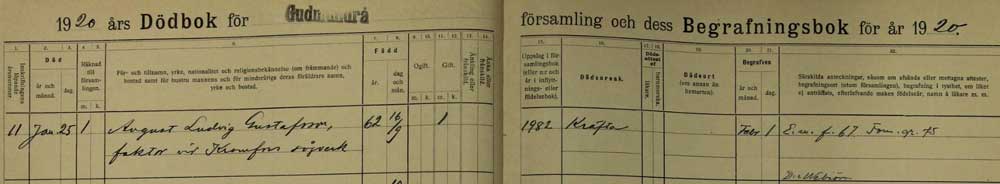 1920 års Dödbok för Gudmundrå
församling och dess Begrafningsbok för år 1920.
1. 2. 3. 5. 7. 8. 9. 10. 11. 12. 13.
Inskrifningens löpande årsnummer.
Död
år och månad. dag.
Räknad till församlingen. m. k.
För- och tillnamn, yrke, nationalitet och religionsbekännelse (om främmande) och
bostad samt för hustru mannens och för minderåriga deras föräldrars namn,
yrke och bostad.
Född
år. dag och mån.
Ogift. m. k.
Gift. m. k.
15. 17. 18. 19. 20. 21. 22.
Uppslag i församlingsbok (eller n:r och år i inflyttnings- eller födelsebok).
Dödsorsak.
Dödsort
(om annan än hemorten).
Begrafven
år och månad. dag.
Särskilda anteckningar, såsom om afsända eller mottagna attester,
begrafningsort (utom församlingen), begrafning i tysthet, om liket
ej anträffats, efterlefvande makes födelseår, namn å läkare m. m.
11 Jan. 25 1 August Ludvig Gustafsson, 62 16/9 1 1982 Kräfta Febr 1 E.m. f. 67 Fam. gr. 75
faktor vid Kramfors sågverk